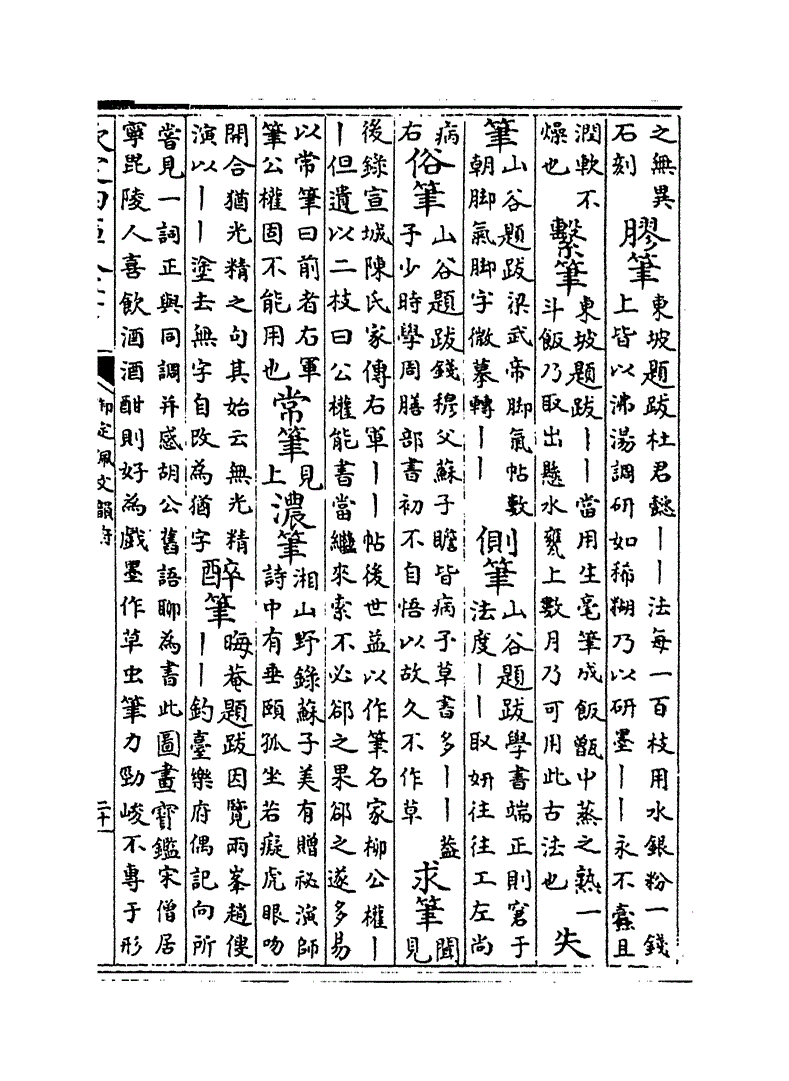 之無異
石刻
膠筆
東坡題跋杜君懿丨丨法每一百枝用水銀粉一錢
上皆以沸湯調研如稀糊乃以研墨丨丨永不蠹且
潤軟不
燥也
繫筆
東坡題跋丨丨當用生毫筆成飯甑中蒸之熟一
斗飯乃取出懸水甕上數月乃可用此古法也
失
筆
山谷題跋梁武帝脚氣帖數
朝脚氣脚字微摹轉丨丨
側筆
山谷題跋學書端正則窘于
法度丨丨取妍往往工左尚
病
右
俗筆
山谷題跋錢穆父蘇子瞻皆病予草書多丨丨葢
予少時學周膳部書初不自悟以故久不作草
求筆
聞
見
後錄宣城陳氏家傳右軍丨丨帖後世益以作筆名家柳公權丨
丨但遺以二枝曰公權能書當繼來索不必郤之果郤之遂多易
以常筆曰前者右軍
筆公權固不能用也
常筆
見
上
濃筆
湘山野錄蘇子美有贈祕演師
詩中有垂頤孤坐若癡虎眼吻
開合猶光精之句其始云無光精
演以丨丨塗去無字自改為猶字
醉筆
晦菴題跋因覽兩峯趙傁
丨丨釣臺樂府偶記向所
嘗見一詞正與同調幷感胡公舊語聊為書此圖畫寶鑑宋僧居
寧毘陵人喜飲酒酒酣則好為戲墨作草虫筆力勁峻不專于形
御定佩文韻府